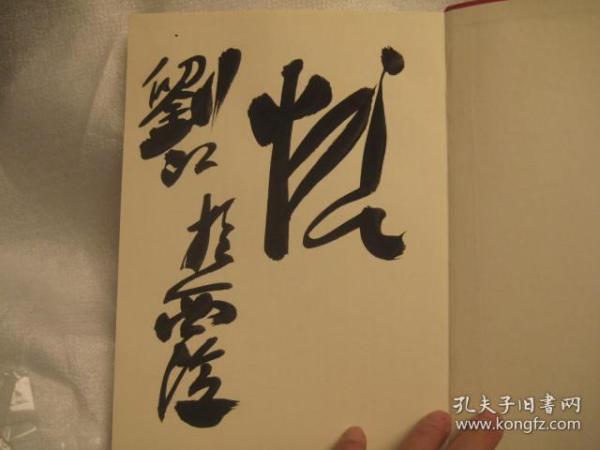 劉江 於西泠
孔夫子旧书网
www.kongfz.com